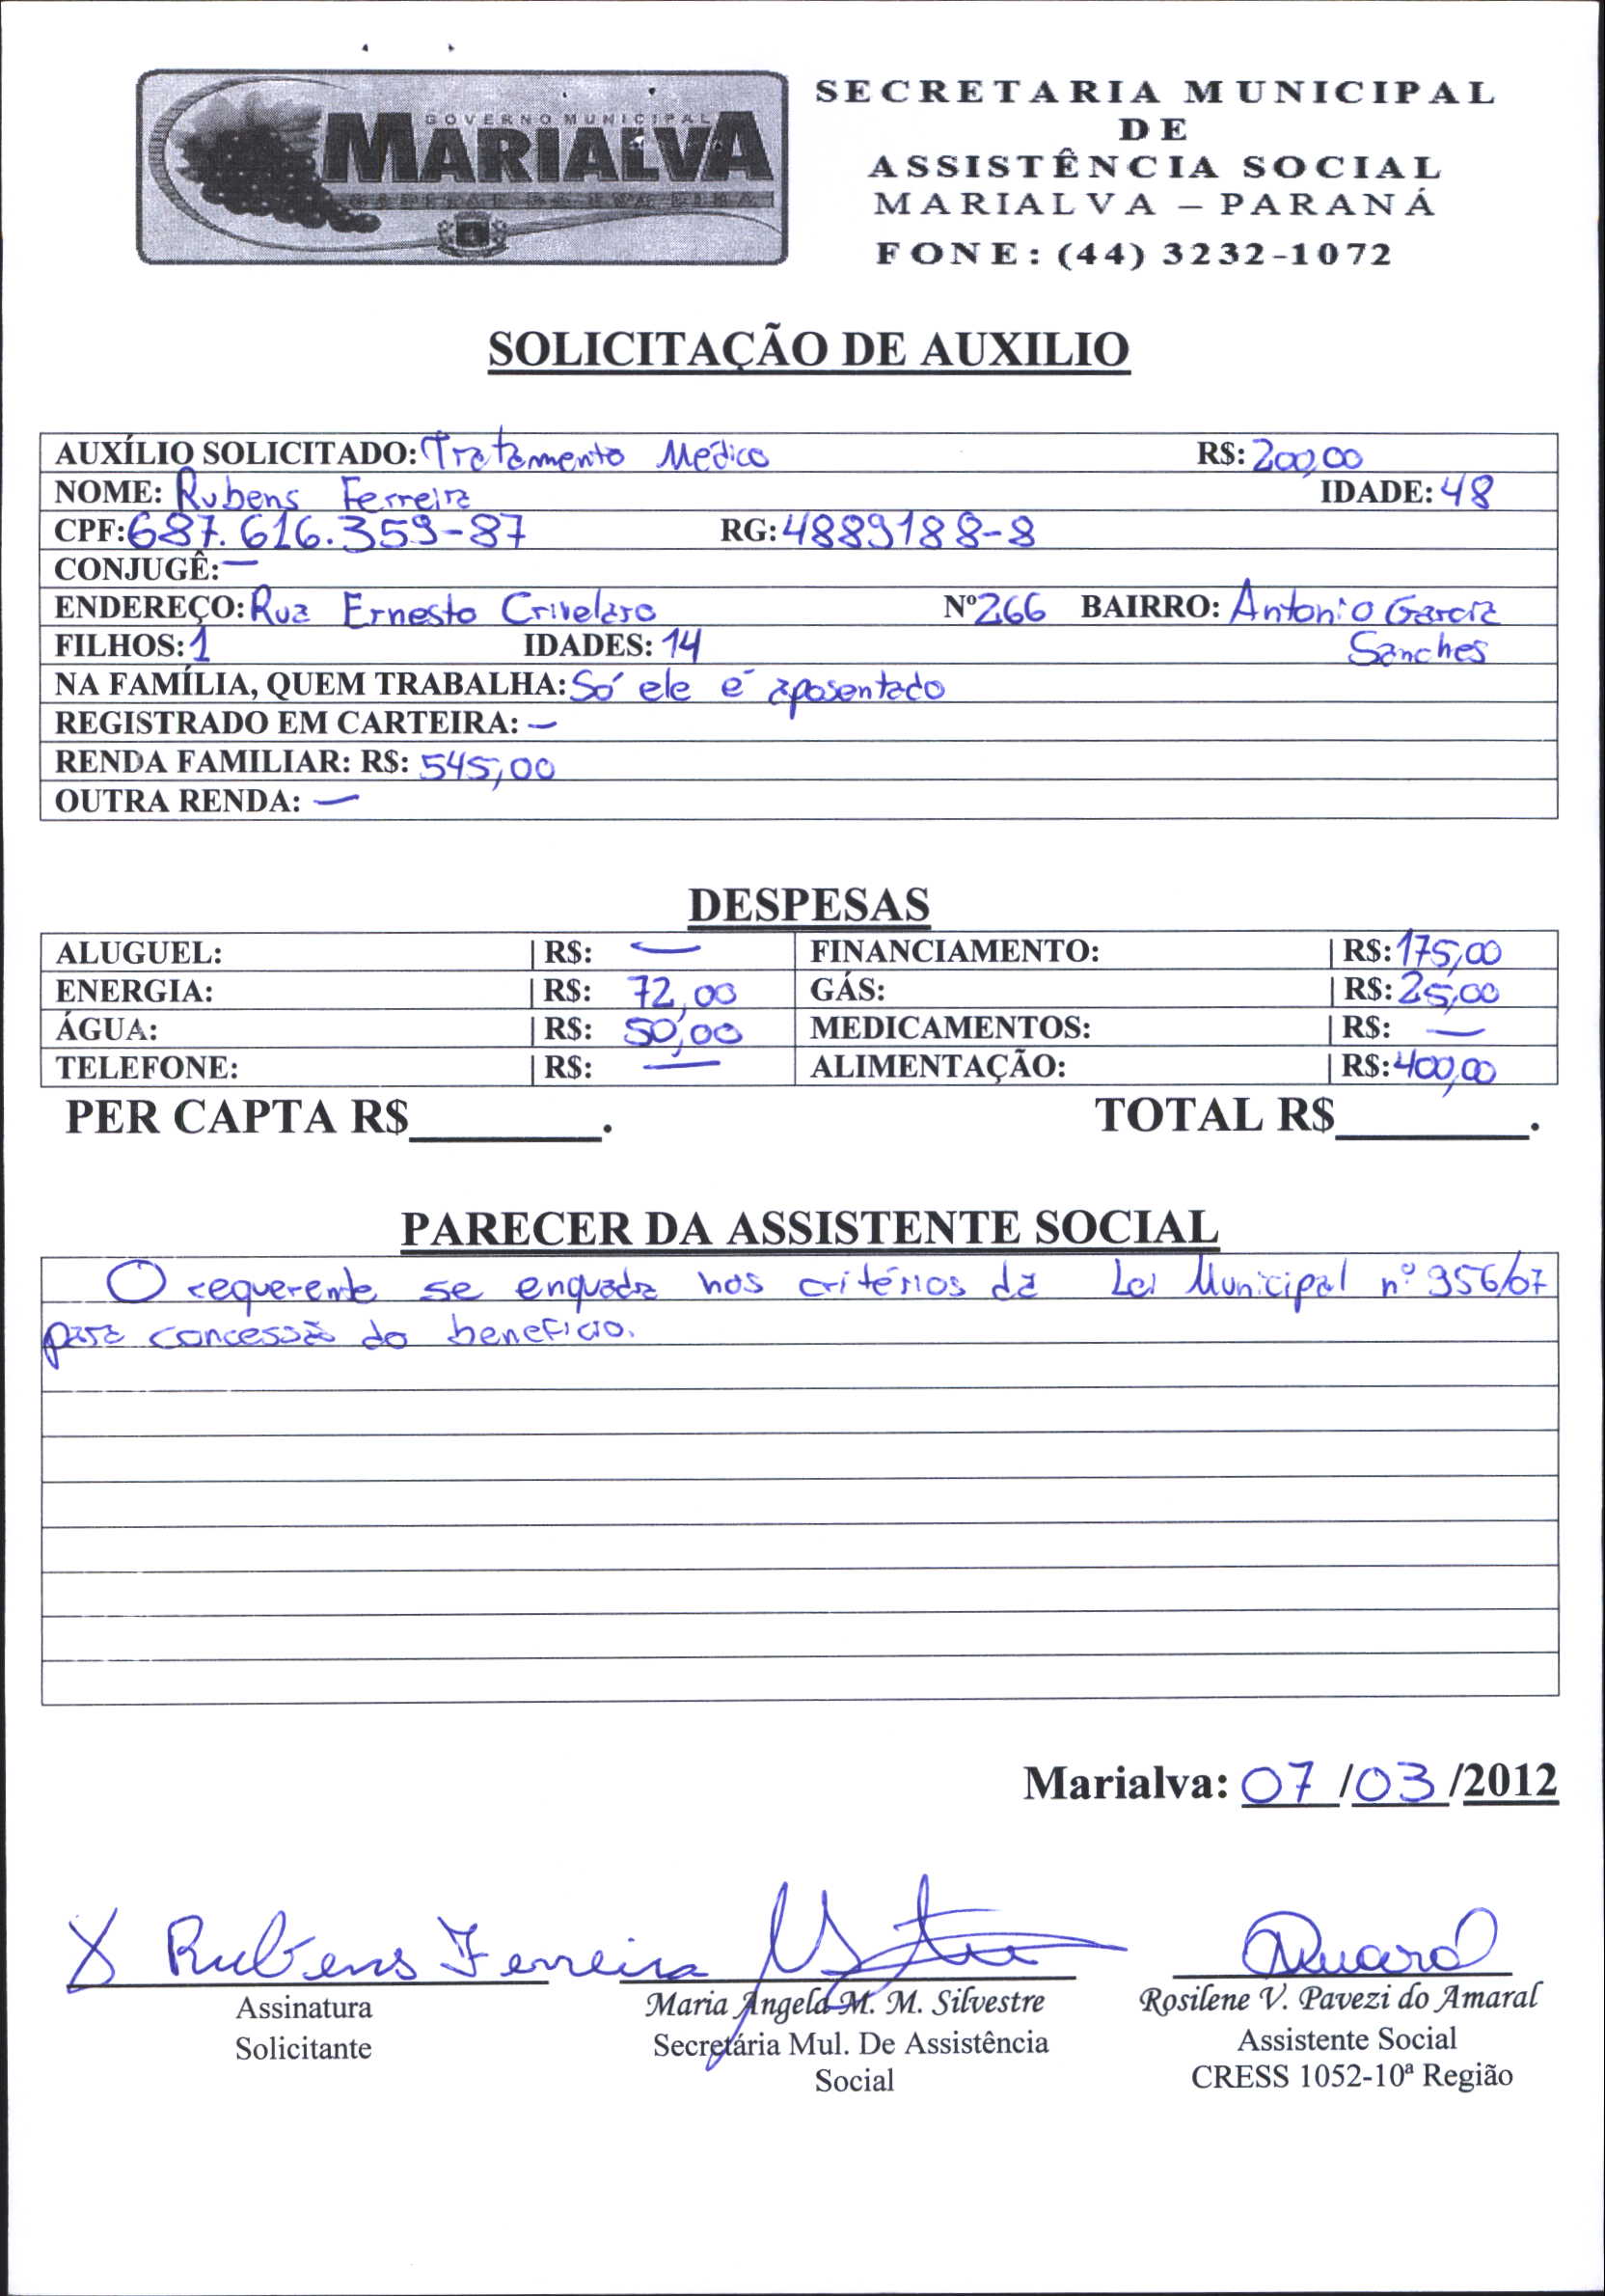 GOVERNO MUNICIPAL
MARIALVA
CAPITAL DA UVA FINA
SECRETARIA MUNICIPAL
DE
ASSISTÊNCIA SOCIAL
MARIALVA – PARANÁ
FONE: (44) 3232-1072
SOLICITAÇÃO DE AUXILIO
AUXÍLIO SOLICITADO: Tratamento Médico R$: 200,00
NOME: Rubens Ferreira IDADE: 48
CPF: 687.616.359-87 RG: 4889188-8
CONJUGÊ: —
ENDEREÇO: Rua Ernesto Crivelaro Nº 266 BAIRRO: Antonio Garcia
FILHOS: 1 IDADES: 14 Sanches
NA FAMÍLIA, QUEM TRABALHA: Só ele é aposentado
REGISTRADO EM CARTEIRA: —
RENDA FAMILIAR: R$: 545,00
OUTRA RENDA: —
DESPESAS
ALUGUEL: | R$: — FINANCIAMENTO: | R$: 175,00
ENERGIA: | R$: 72,00 GÁS: | R$: 25,00
ÁGUA: | R$: 50,00 MEDICAMENTOS: | R$: —
TELEFONE: | R$: — ALIMENTAÇÃO: | R$: 400,00
PER CAPTA R$________. TOTAL R$________.
PARECER DA ASSISTENTE SOCIAL
O requerente se enquadra nos critérios da Lei Municipal nº 956/07
para concessão do beneficio.
Marialva: 07/03/2012
X Rubens Ferreira
Assinatura
Solicitante
Maria Ângela M. M. Silvestre
Secretária Mul. De Assistência
Social
Rosilene V. Pavezi do Amaral
Assistente Social
CRESS 1052-10ª Região